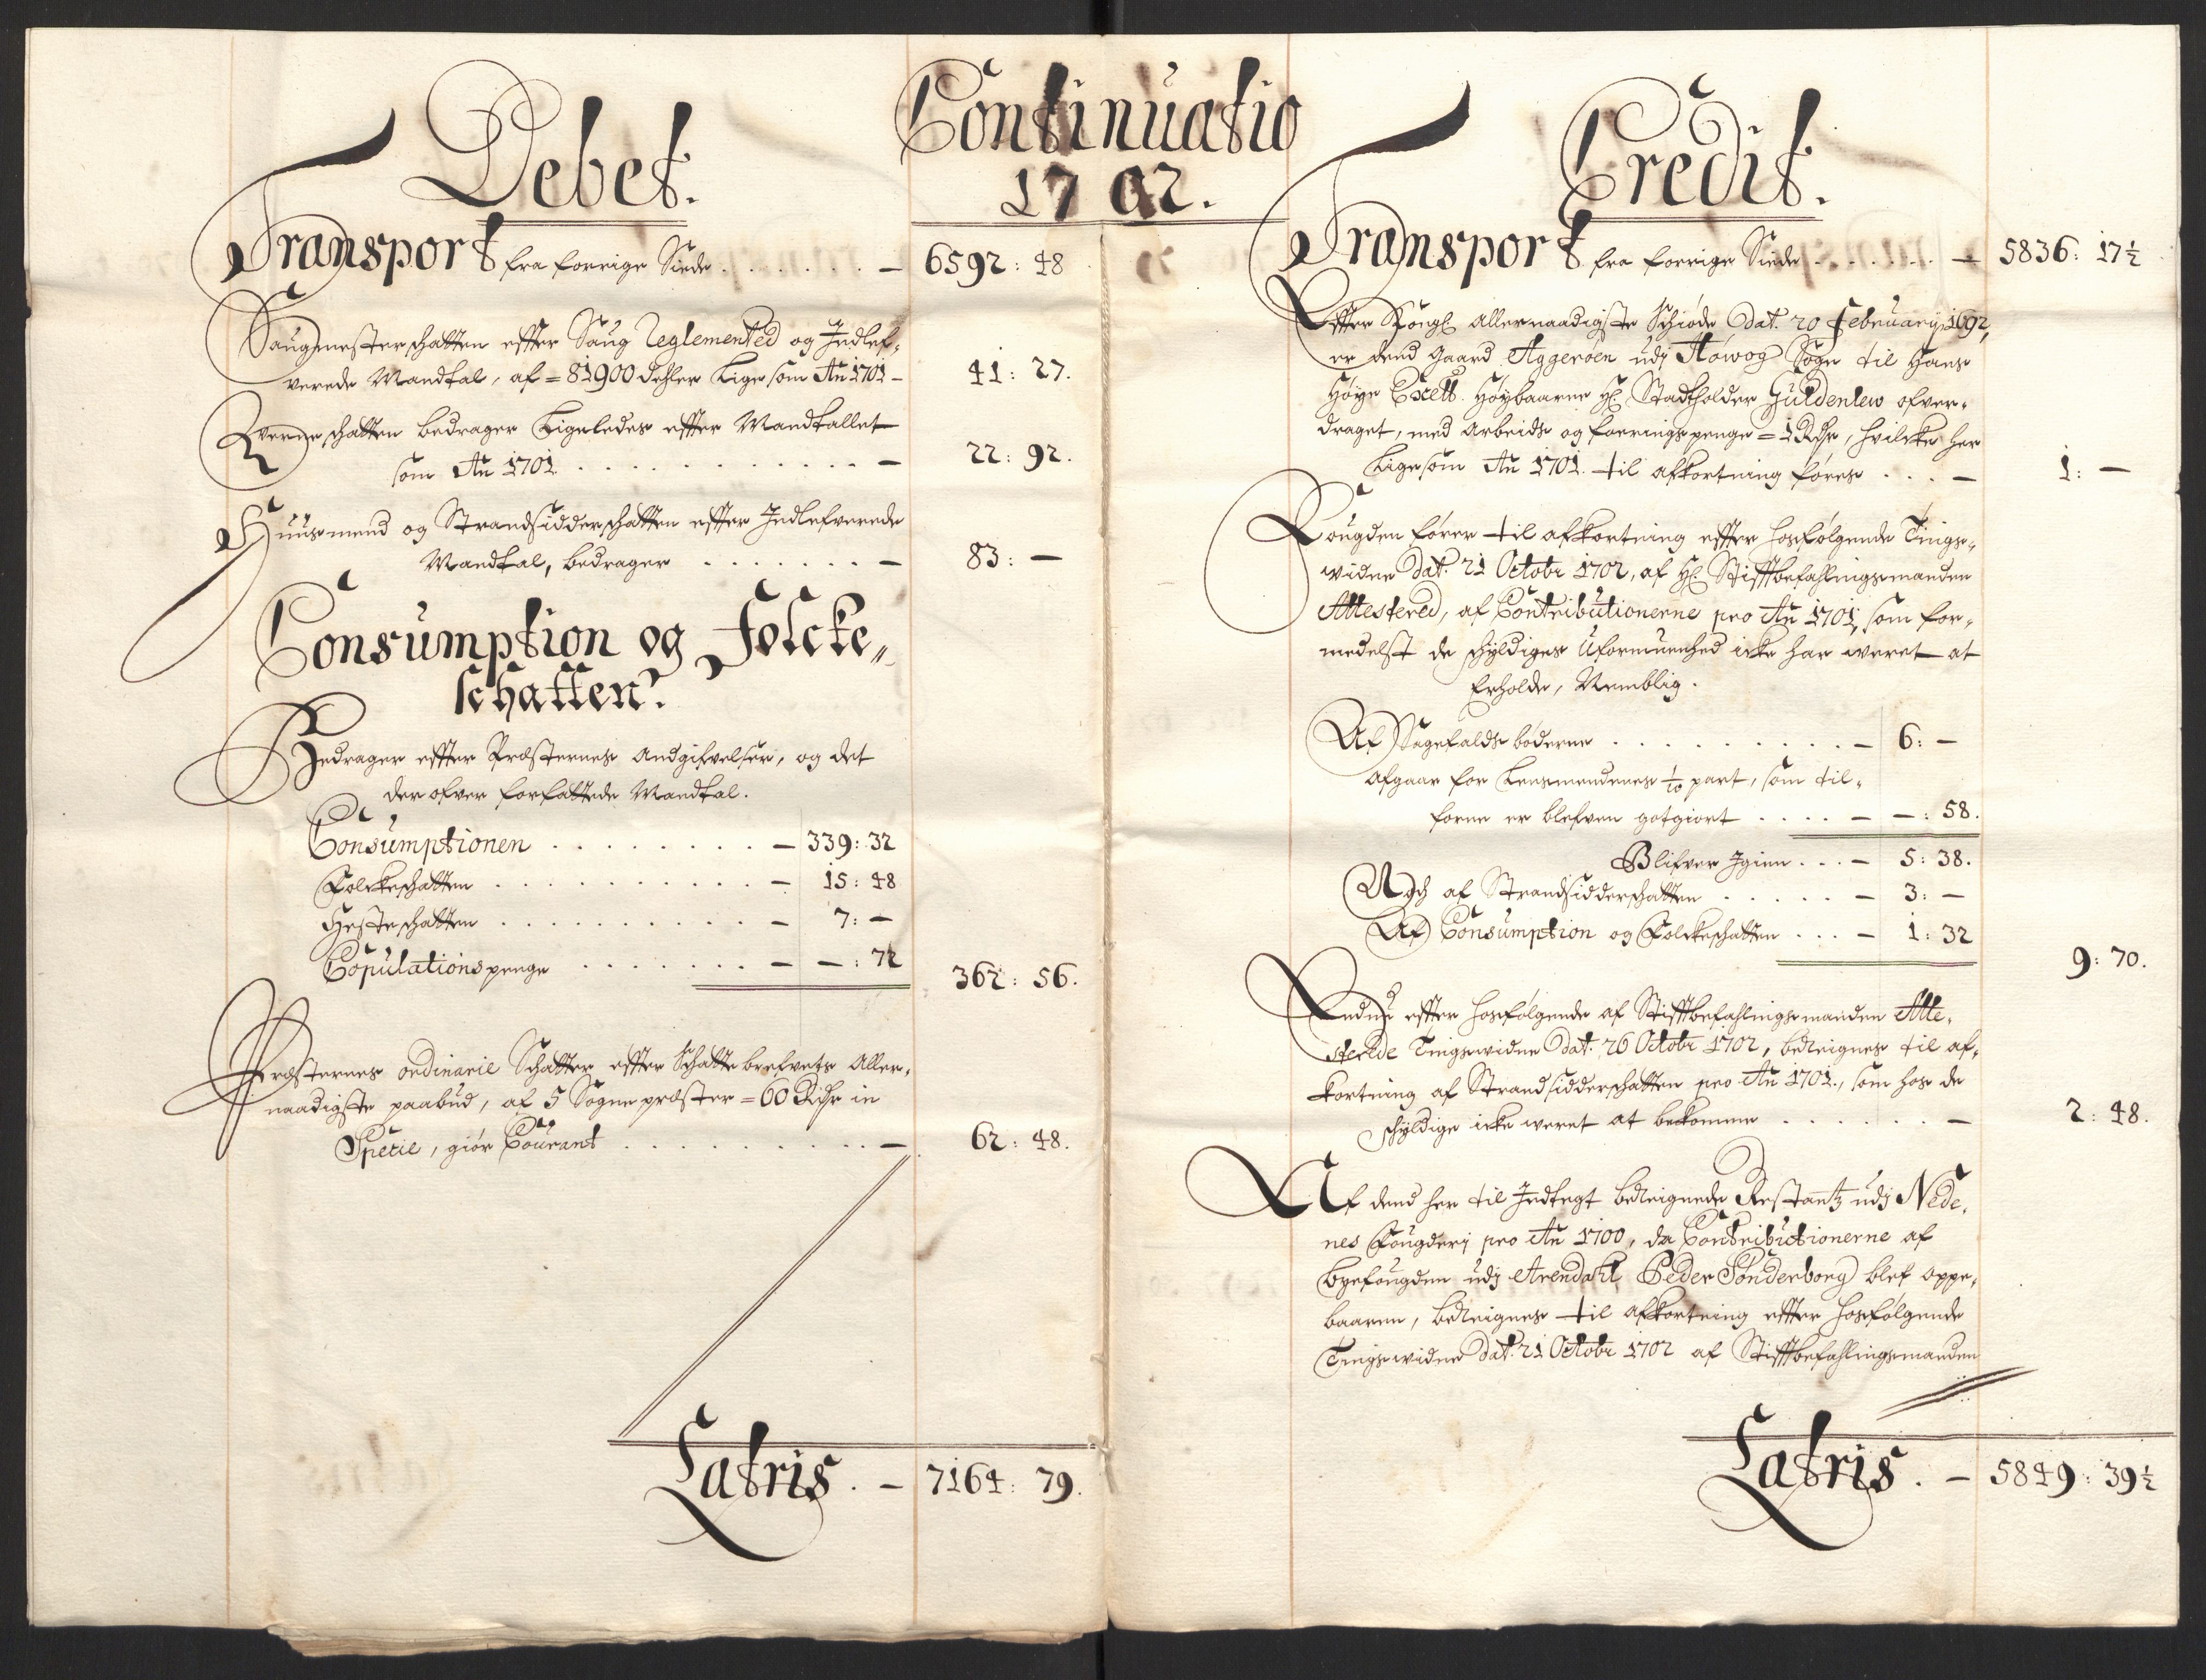 Continuatio
1702.
Debet.
Transport fra forrige Siede . . . . . . — 6592: 48
Saugmesterschatten effter Saug Reglemented og Indlef-
verede Mandtal, af = 81900 dehler Lige som An 1701 — 41: 27.
Qverneschatten bedrager Ligeledes effter Mandtallet
som An 1701 . . . . . . . . . . . — 22: 92.
Huusmend og Strandsidderschatten effter Indlefverede
Mandtal, bedrager . . . . . . . — 83: —
Consumption og Folcke-
schatten?
Bedrager effter Præsternes Andgifvelser, og det
der ofver forfattede Mandtal.
Consumptionen . . . . . . . . — 339: 32
Folckeschatten . . . . . . . . . . — 15: 48
Hesteschatten . . . . . . . . . . — 7: —
Copulations penge . . . . . . . — —: 72
362: 56.
Præsternes ordinarie Schatter effter Schatte brefvets Aller-
naadigste paabud, af 5 Sogne præster = 60 Rdr in
Specie, giør Courant . . . . . . . . . . — 62: 48.
Latris. — 7164: 79.
Credit.
Transport fra forrige Siede . . . . . . — 5836: 17½
Effter Kongl Allernaadigste Schiøde Dat. 20 February 1692,
er dend Gaard Aggerøen udj Høwog Sogn til Hans
Høye Excell. Høybaarne Hr. Stadtholder Güldenlew ofver-
draget, med Arbeids og foerings penge = 1 Rdr, hvilcke her
Ligesom An 1701. til afkortning føres . . . — 1: —
Fougden fører til afkortning effter hosfølgende Tings-
widne Dat. 21 Octobr 1702, af Hr. Stifftbefahlingsmanden
Attestered, af Contributionerne pro An 1701, som for-
medelst de schyldiges Uformuenhed icke har weret at
Erholde, Nemblig.
Af Sagefalds bøderne . . . . . . . . . — 6: —
Afgaar for Lensmendenes 1/10 part, som til-
forne er blefven gotgiort . . . . — —: 58.
Blifver Igien . . . — 5: 38.
Och af Strandsidderschatten . . . . . — 3: —
Af Consumption og Folckeschatten . . . — 1: 32
9: 70.
Endnu effter hosfølgende af Stifftbefahlingsmanden Atte-
sterede Tingswidne Dat. 26 Octobr 1702, bereignes til af-
kortning af Strandsidderschatten pro An 1701., som hos de
schyldige icke weret at bekomme . . . . . . — 2: 48.
Af dend her til Indtegt bereignede Restantz udj Nede-
nes Fougderj pro An 1700, da Contributionerne af
Byefougden udj Arendahl Peder Sønderborg blef oppe-
baaren, bereignes til afkortning effter hosfølgende
Tingswidne Dat. 21 Octobr 1702 af Stifftbefahlingsmanden
Latris. — 5849: 39½